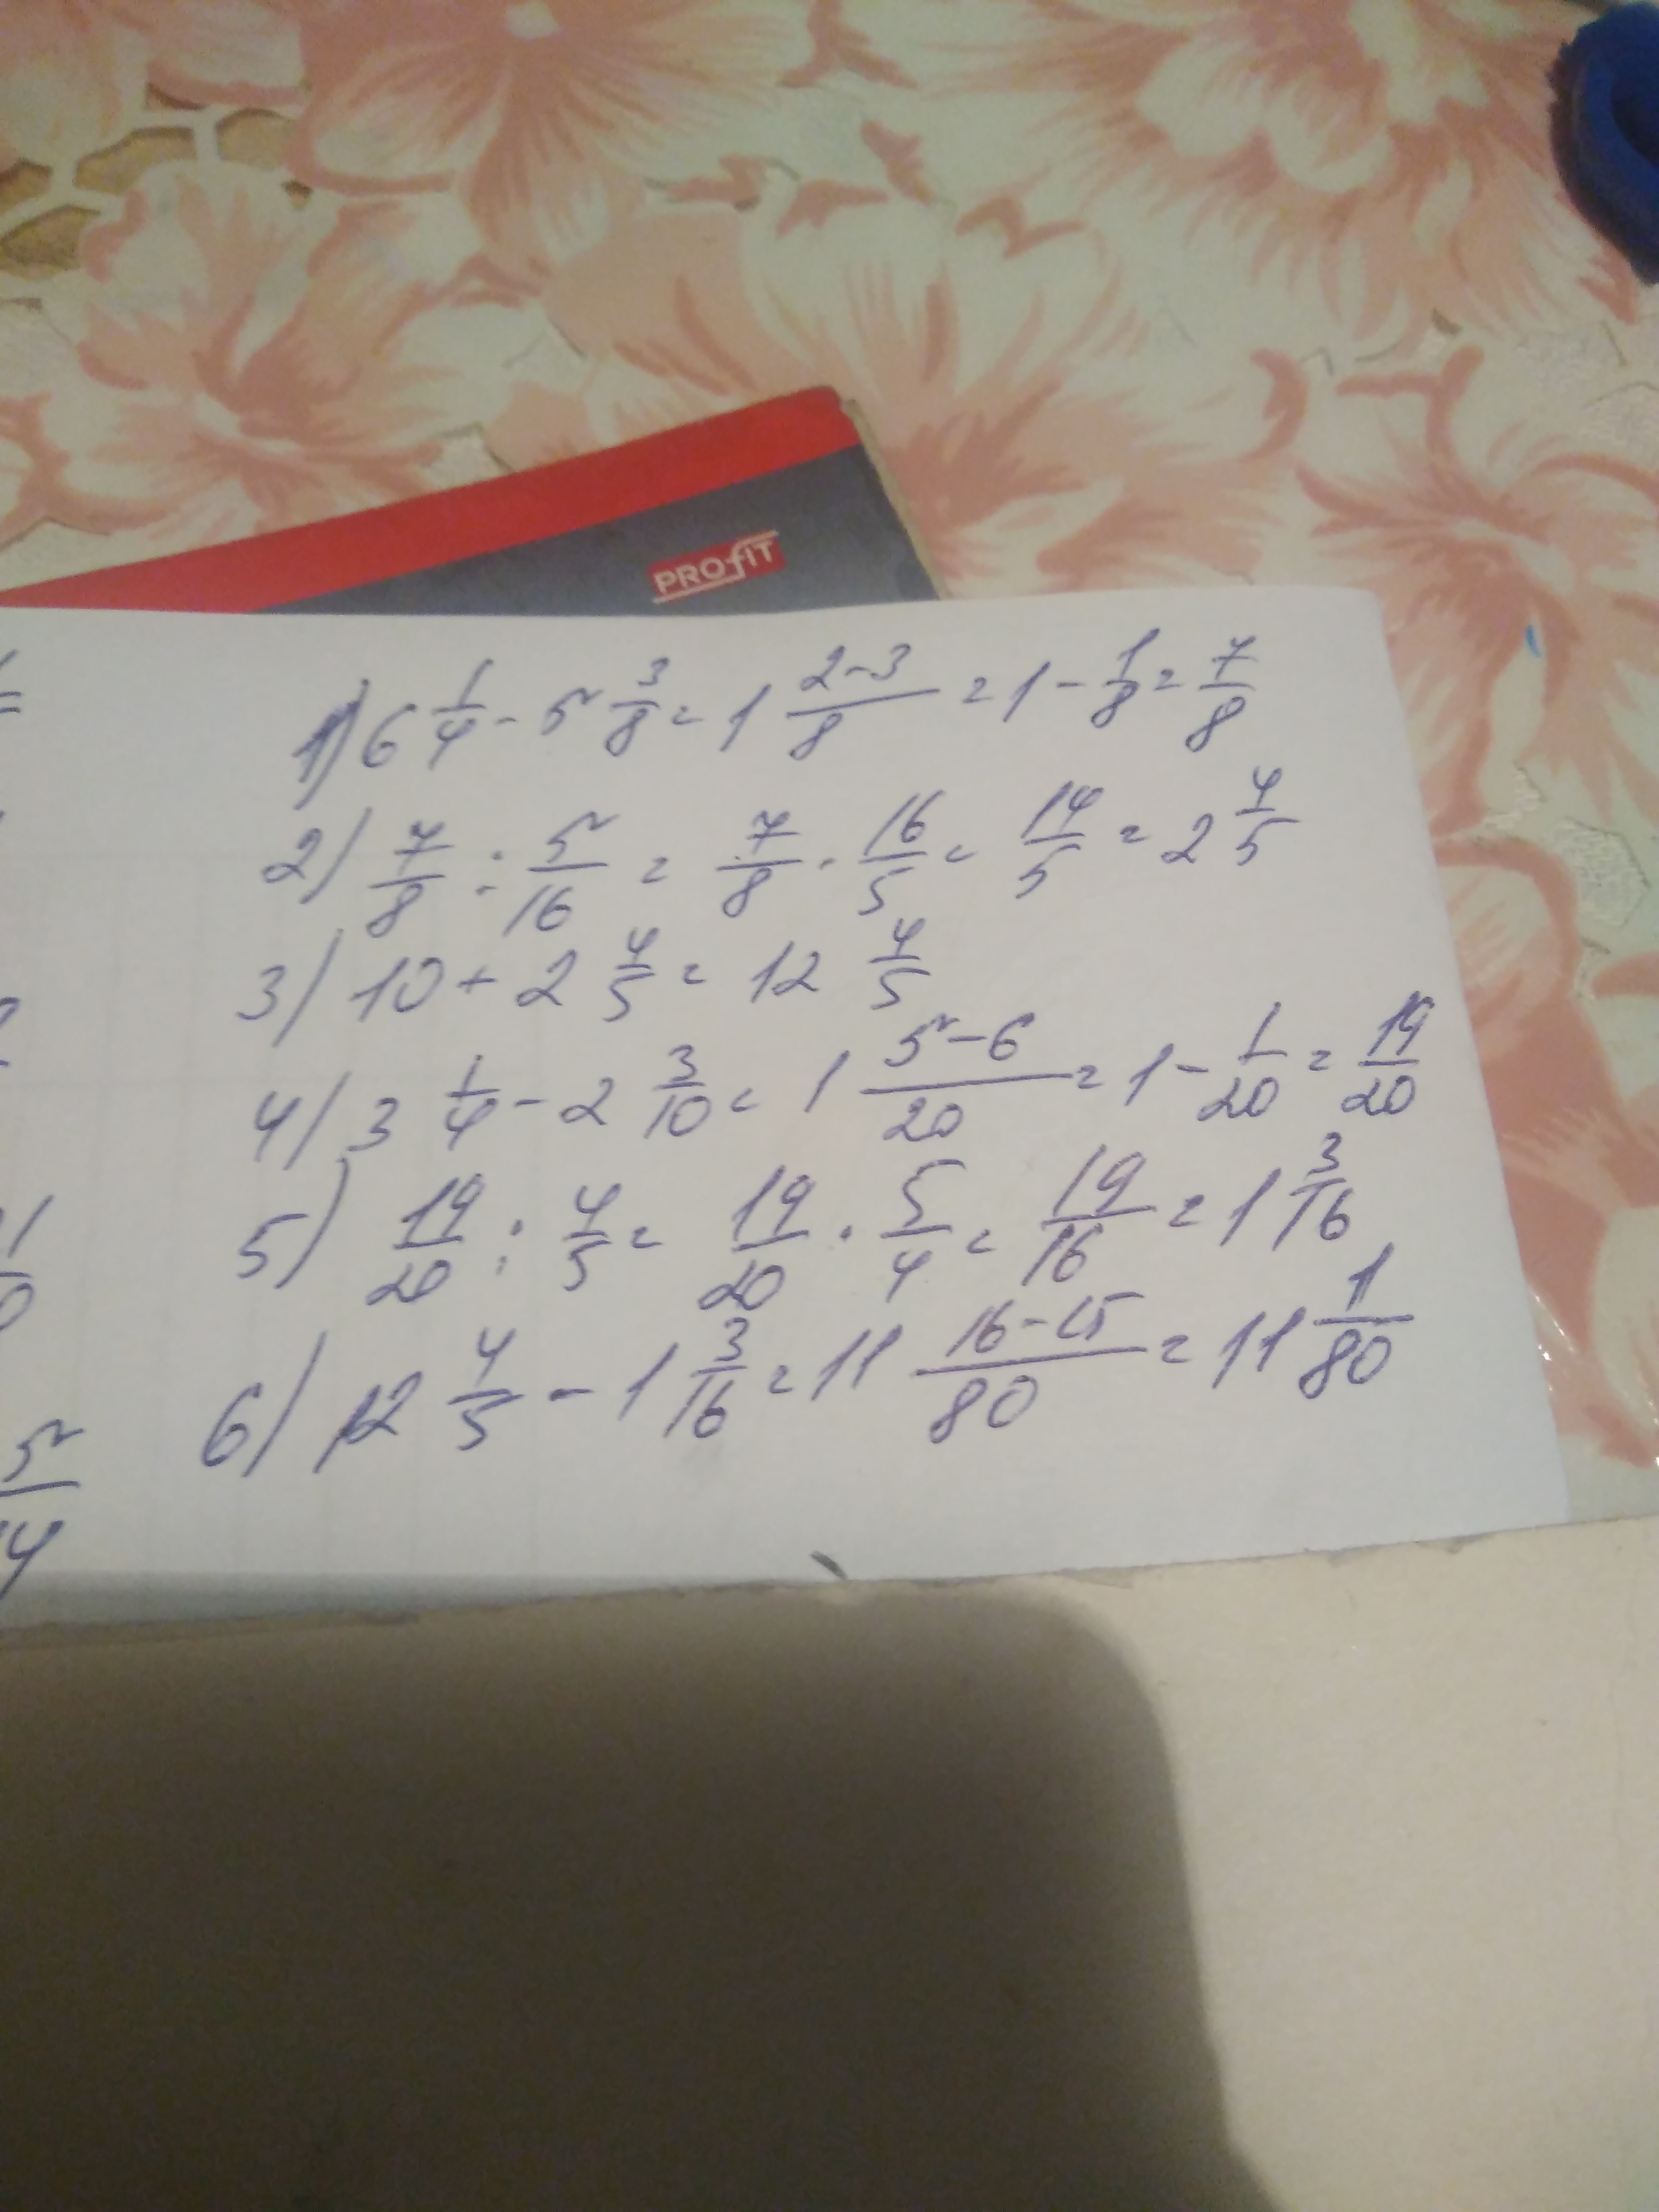 PROFIT
1) 6 1/4 - 5 3/8 = 1 (2-3)/8 = 1 - 1/8 = 7/8
2) 7/8 : 5/16 = 7/8 · 16/5 = 14/5 = 2 4/5
3) 10 + 2 4/5 = 12 4/5
4) 3 1/4 - 2 3/10 = 1 (5-6)/20 = 1 - 1/20 = 19/20
5) 19/20 : 4/5 = 19/20 · 5/4 = 19/16 = 1 3/16
6) 12 4/5 - 1 3/16 = 11 (16-15)/80 = 11 1/80